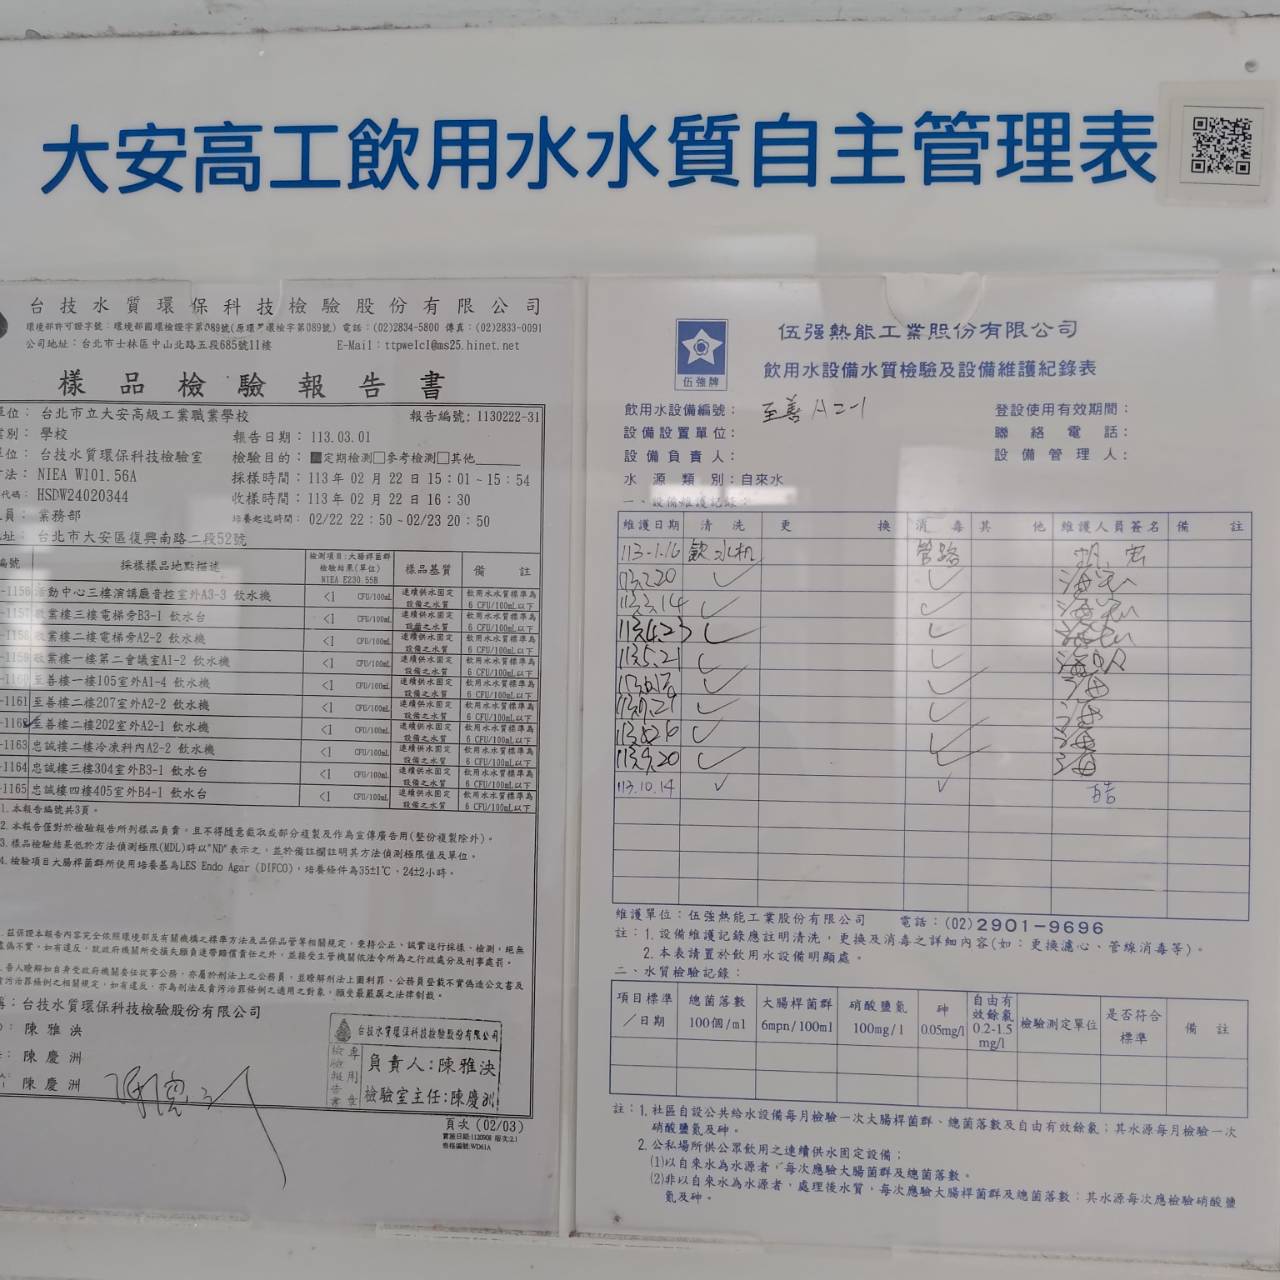 大安高工飲用水水質自主管理表
台技水質環保科技檢驗股份有限公司
環境部許可證字號：環境部國環檢證字第089號(原環署環檢字第089號) 電話：(02)2834-5800 傳真：(02)2833-0091
公司地址：台北市士林區中山北路五段685號11樓 E-Mail：ttpwelcl@ms25.hinet.net
樣品檢驗報告書
單位：台北市立大安高級工業職業學校 報告編號：1130222-31
別：學校 報告日期：113.03.01
單位：台技水質環保科技檢驗室 檢驗目的：■定期檢測□參考檢測□其他
方法：NIEA W101.56A 採樣時間：113年02月22日15:01~15:54
代碼：HSDW24020344 收樣時間：113年02月22日16:30
員：業務部 培養起迄時間：02/22 22:50~02/23 20:50
地址：台北市大安區復興南路二段52號
編號 採樣樣品地點描述 檢測項目:大腸桿菌群 檢驗結果(單位) NIEA E230.55B 樣品基質 備註
-1156 活動中心三樓演講廳音控室外A3-3 飲水機 <1 CFU/100mL 連續供水固定設備之水質 飲用水水質標準為6 CFU/100mL以下
-1157 敬業樓三樓電梯旁B3-1 飲水台 <1 CFU/100mL 連續供水固定設備之水質 飲用水水質標準為6 CFU/100mL以下
-1158 敬業樓二樓電梯旁A2-2 飲水機 <1 CFU/100mL 連續供水固定設備之水質 飲用水水質標準為6 CFU/100mL以下
-1159 敬業樓一樓第二會議室A1-2 飲水機 <1 CFU/100mL 連續供水固定設備之水質 飲用水水質標準為6 CFU/100mL以下
-1160 至善樓一樓105室外A1-4 飲水機 <1 CFU/100mL 連續供水固定設備之水質 飲用水水質標準為6 CFU/100mL以下
-1161 至善樓二樓207室外A2-2 飲水機 <1 CFU/100mL 連續供水固定設備之水質 飲用水水質標準為6 CFU/100mL以下
-1162 至善樓二樓202室外A2-1 飲水機 <1 CFU/100mL 連續供水固定設備之水質 飲用水水質標準為6 CFU/100mL以下
-1163 忠誠樓二樓冷凍科內A2-2 飲水機 <1 CFU/100mL 連續供水固定設備之水質 飲用水水質標準為6 CFU/100mL以下
-1164 忠誠樓三樓304室外B3-1 飲水台 <1 CFU/100mL 連續供水固定設備之水質 飲用水水質標準為6 CFU/100mL以下
-1165 忠誠樓四樓405室外B4-1 飲水台 <1 CFU/100mL 連續供水固定設備之水質 飲用水水質標準為6 CFU/100mL以下
1.本報告編號共3頁。
2.本報告僅對於檢驗報告所列樣品負責，且不得隨意截取或部分複製及作為宣傳廣告用(整份複製除外)。
3.樣品檢驗結果低於方法偵測極限(MDL)時以"ND"表示之，並於備註欄註明其方法偵測極限值及單位。
4.檢驗項目大腸桿菌群所使用培養基為LES Endo Agar (DIFCO)，培養條件為35±1℃、24±2小時。
茲保證本報告內容完全依照環境部及有關機構之標準方法及品保品管等相關規定，秉持公正、誠實進行採樣、檢測，絕無
虛偽不實，如有違反，就政府機關所受損失願負連帶賠償責任之外，並接受主管機關依法令所為之行政處分及刑事處罰。
告人瞭解如自身受政府機關委任從事公務，亦屬於刑法上之公務員，並瞭解刑法上圖利罪、公務員登載不實偽造公文書及
貪污治罪條例之相關規定，如有違反，亦為刑法及貪污治罪條例之適用之對象，願受最嚴厲之法律制裁。
：台技水質環保科技檢驗股份有限公司
：陳雅泱
：陳慶洲
：陳慶洲
台技水質環保科技檢驗股份有限公司
檢驗報告書專用章
負責人：陳雅泱
檢驗室主任：陳慶洲
頁次(02/03)
實施日期:1120908 版次:2.1
表格編號:WD61A
伍強牌
伍强熱能工業股份有限公司
飲用水設備水質檢驗及設備維護紀錄表
飲用水設備編號：至善A2-1 登設使用有效期間：
設備設置單位： 聯絡電話：
設備負責人： 設備管理人：
水源類別：自來水
一、設備維護記錄：
維護日期 清洗 更換 消毒 其他 維護人員簽名 備註
113-1.16 飲水机 管路
113.2.20 ✓ ✓
113.3.14 ✓ ✓
113.4.23 ✓ ✓
113.5.21 ✓ ✓
✓ ✓
✓ ✓
✓ ✓
113.9.20 ✓ ✓
113.10.14 ✓ ✓
維護單位：伍強熱能工業股份有限公司 電話：(02)2901-9696
註：1.設備維護記錄應註明清洗，更換及消毒之詳細內容(如：更換濾心、管線消毒等)。
2.本表請置於飲用水設備明顯處。
二、水質檢驗記錄：
項目標準／日期 總菌落數100個/ml 大腸桿菌群6mpn/100ml 硝酸鹽氮100mg/l 砷0.05mg/l 自由有效餘氯0.2-1.5mg/l 檢驗測定單位 是否符合標準 備註
註：1.社區自設公共給水設備每月檢驗一次大腸桿菌群、總菌落數及自由有效餘氯；其水源每月檢驗一次
硝酸鹽氮及砷。
2.公私場所供公眾飲用之連續供水固定設備；
(1)以自來水為水源者，每次應驗大腸菌群及總菌落數。
(2)非以自來水為水源者，處理後水質，每次應驗大腸桿菌群及總菌落數；其水源每次應檢驗硝酸鹽
氮及砷。